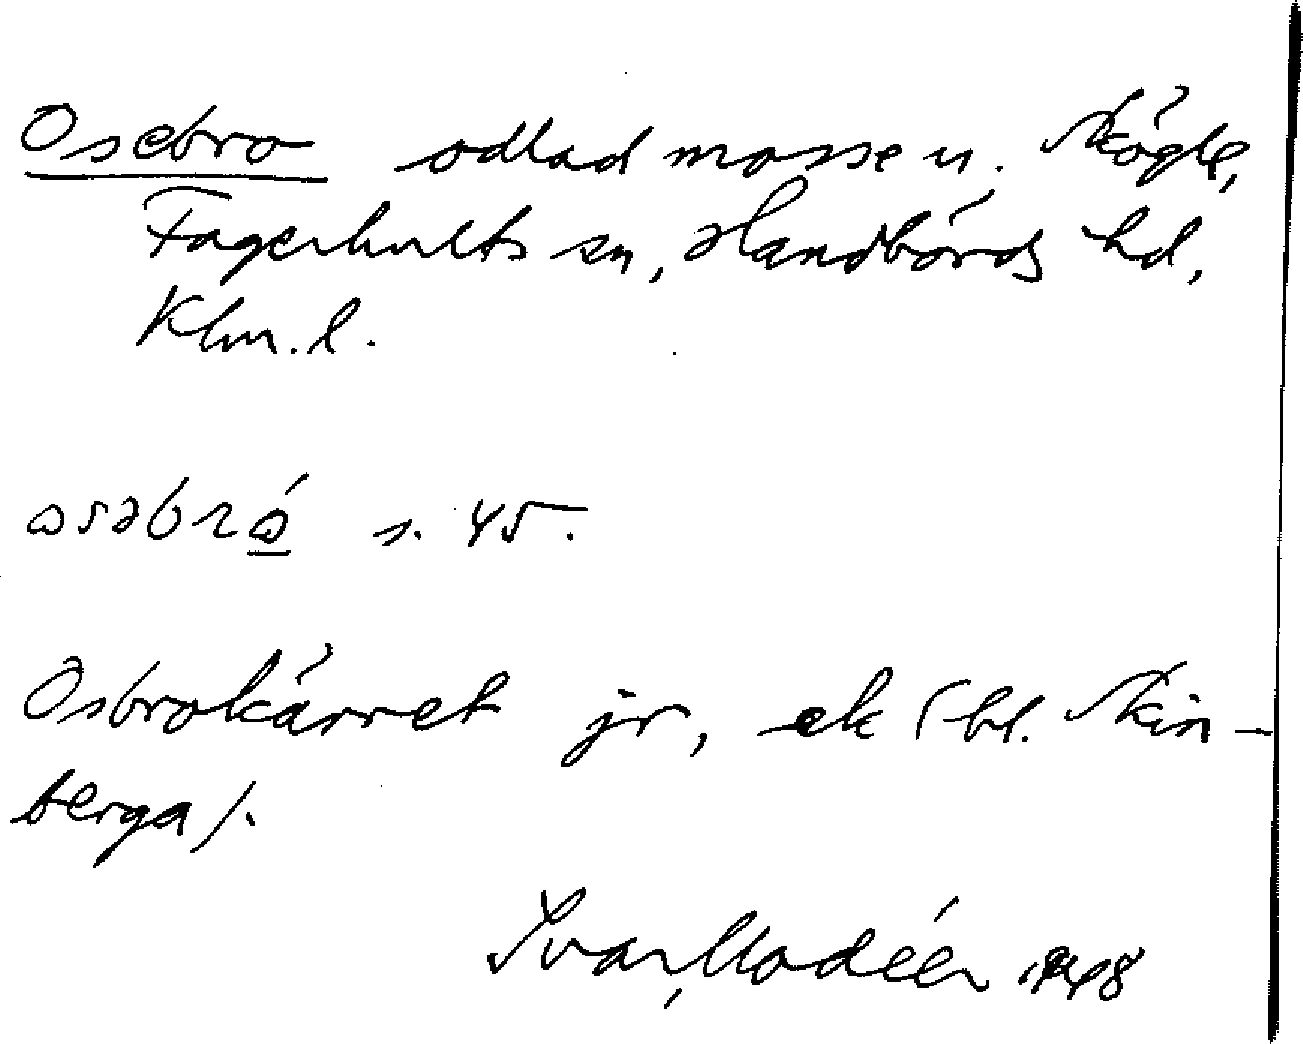 Osebro odlad mosse u. Skögle,
Fagerhults sn, Handbörds hd,
Klm. l.
ɷsəbrɷ́ s. 45.
Osbrokärret jr, ek (bl. Skin-
berga).
Ivar Modéer 1948